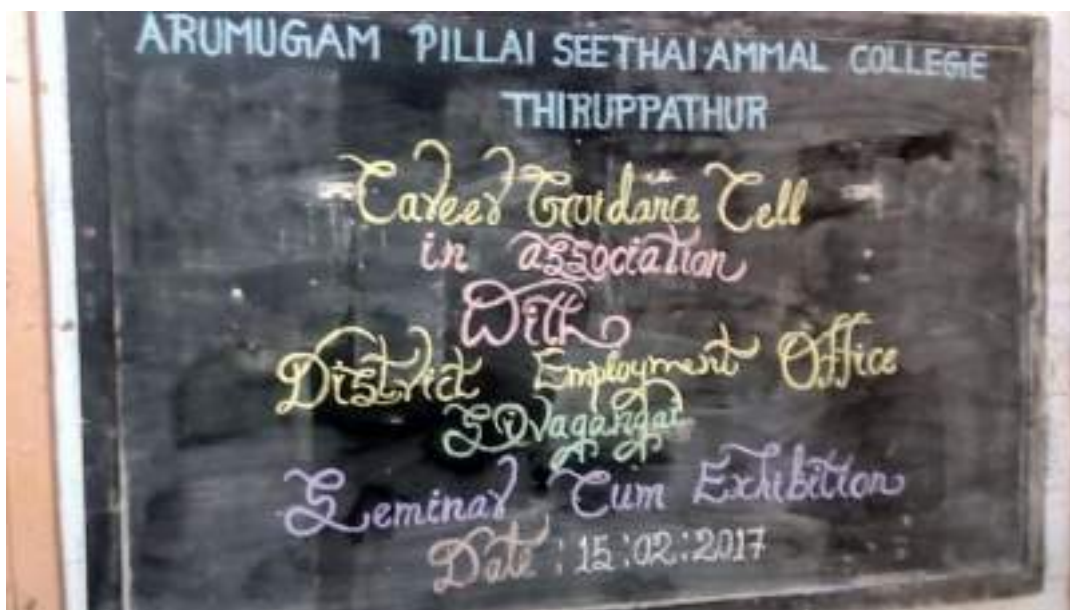 ARUMUGAM PILLAI SEETHAI AMMAL COLLEGE
THIRUPPATHUR
Career Guidance Cell
in association
With
District Employment Office
Sivagangai
Seminar Cum Exhibition
Date : 15:02:2017